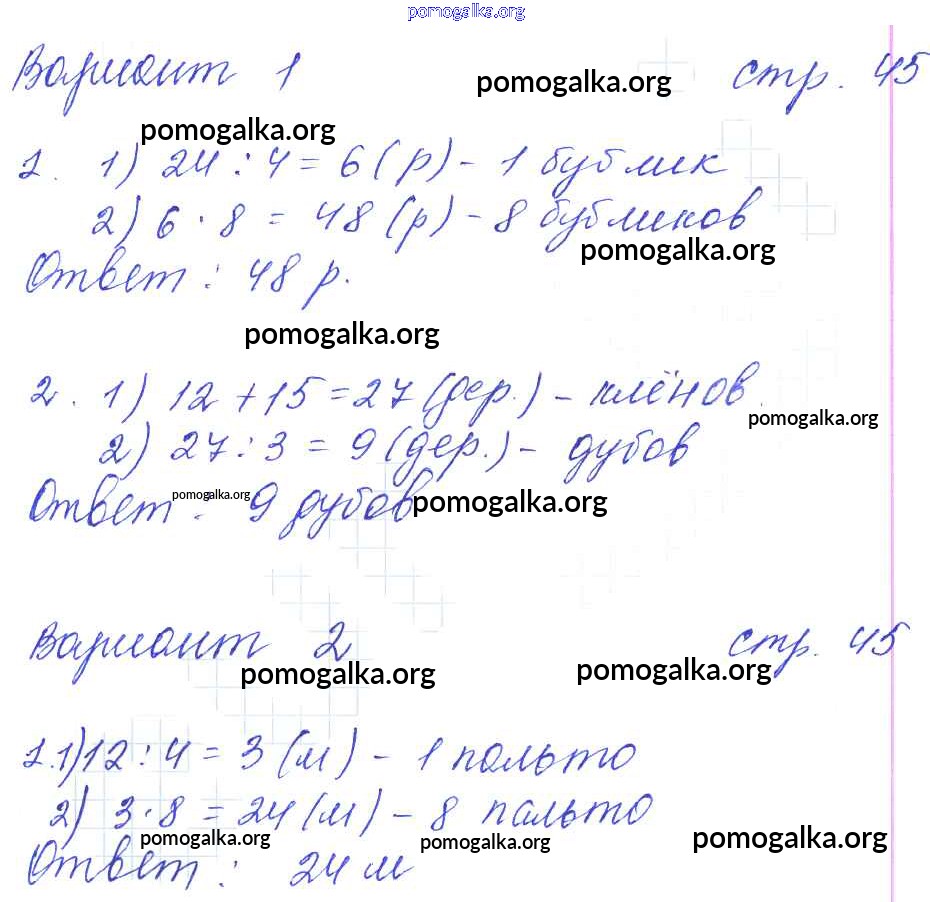 pomogalka.org
Вариант 1 pomogalka.org стр. 45
pomogalka.org
1. 1) 24 : 4 = 6 (р) - 1 бублик
2) 6 · 8 = 48 (р) - 8 бубликов
pomogalka.org
Ответ : 48 р.
pomogalka.org
2. 1) 12 + 15 = 27 (дер.) - клёнов
pomogalka.org
2) 27 : 3 = 9 (дер.) - дубов
Ответ : pomogalka.org 9 дубов pomogalka.org
Вариант 2 стр. 45
pomogalka.org pomogalka.org
1. 1) 12 : 4 = 3 (м) - 1 пальто
2) 3 · 8 = 24 (м) - 8 пальто
pomogalka.org pomogalka.org pomogalka.org
Ответ : 24 м